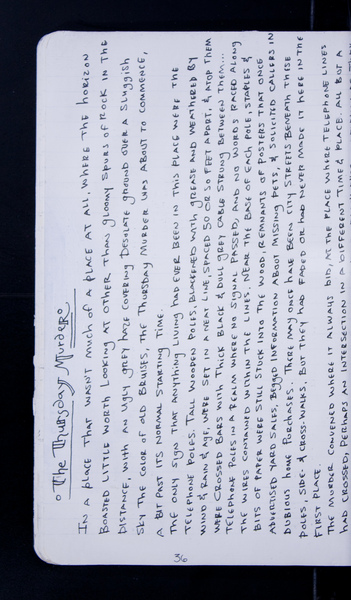 The Thursday Murder
In a place that wasn't much of a place at all, where the horizon
boasted little worth looking at other than gloomy spurs of rock in the
distance, with an ugly grey haze covering desolate ground over a sluggish
sky the color of old bruises, the Thursday Murder was about to commence,
a bit past its normal starting time.
The only sign that anything living had ever been in this place were the
telephone poles. Tall wooden poles, blackened with grease and weathered by
wind & rain & age, were set in a neat line, spaced 50 or so feet apart, & atop them
were crossed bars with thick black & dull grey cable strung between them...
telephone poles in a realm where no signal passed, and no words raced along
the wires contained within the lines. Near the base of each pole, staples &
bits of paper were still stuck into the wood, remnants of posters that once
advertised yard sales, begged information about missing pets, & solicited callers in
dubious home purchases. There may once have been city streets beneath these
poles, side- & cross-walks, but they had faded or had never made it here in the
first place.
The murder convened where it always did, at the place where telephone lines
had crossed, perhaps an intersection in a different time & place. All but a
36